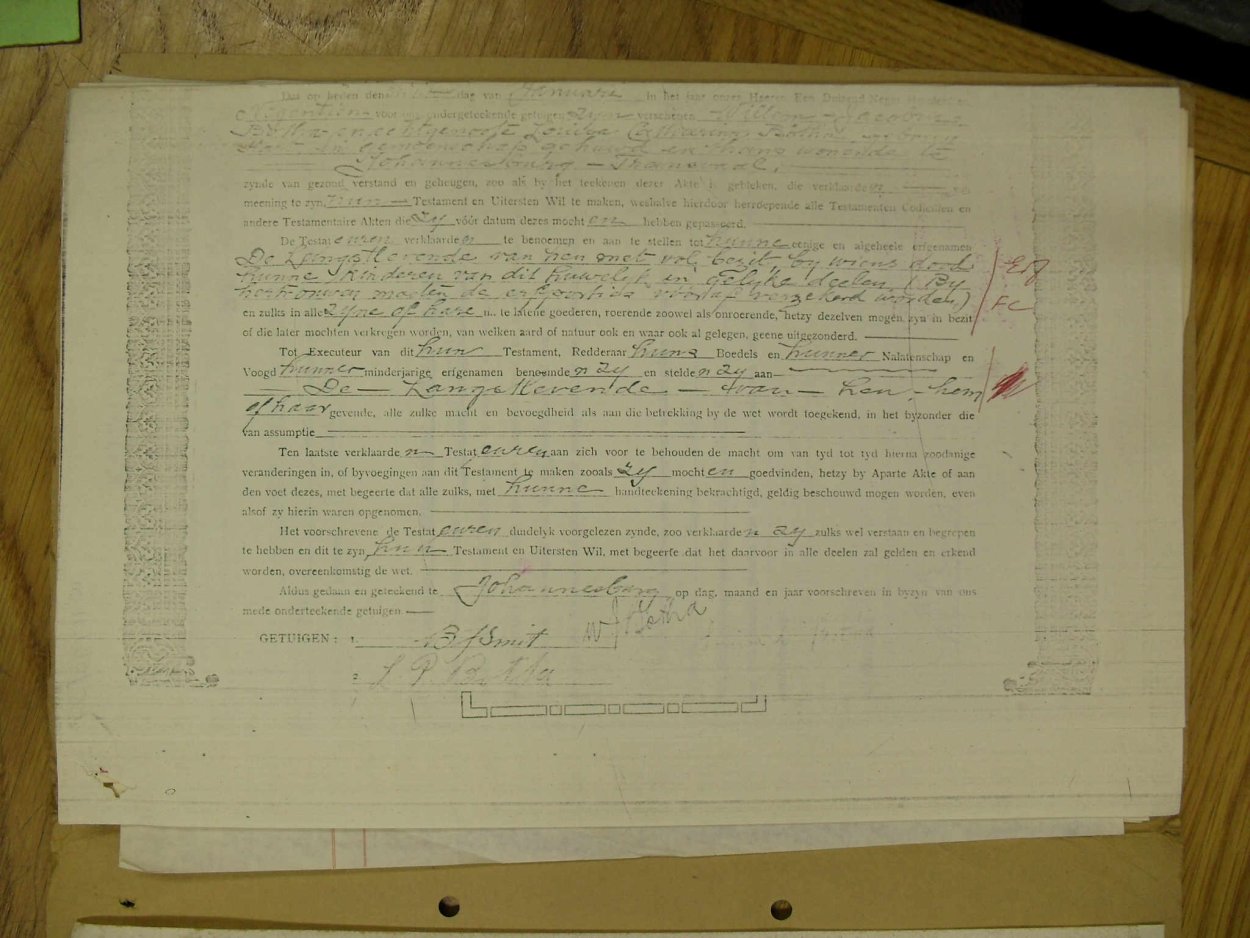 Dat op heden den dag van Januarie in het jaar onzes Heeren Een Duizend Negen Honderd en
voor ons ondergeteekende getuigen zyn verschenen Willem Jacobus
Botha en echtgenoote Louisa Catharina Botha
in gemeenschap gehuwd en thans wonende te
Johannesburg - Transvaal.
zynde van gezond verstand en geheugen, zoo als by het teekenen dezer Akte is gebleken, die verklaarden
meening te zyn, hun Testament en Uitersten Wil te maken, weshalve hierdoor herroepende alle Testamenten Codicillen en
andere Testamentaire Akten die zy vóór datum dezes mochten hebben gepasseerd.
De Testateuren verklaarden te benoemen en aan te stellen tot hunne eenige en algeheele erfgenamen
De Langstlevende van hen met vol bezit by wiens dood
hunne kinderen van dit huwelyk in gelyke deelen (By
hertrouwen moeten de erfportids vooraf verzekerd worden)
en zulks in alle zyne of hare na te latene goederen, roerende zoowel als onroerende, hetzy dezelven mogen zyn in bezit
of die later mochten verkregen worden, van welken aard of natuur ook en waar ook al gelegen, geene uitgezonderd.
Tot Executeur van dit hun Testament, Redderaar huns Boedels en hunner Nalatenschap en
Voogd hunner minderjarige erfgenamen benoemden zy en stelden zy aan
De Langstlevende van hen, hem
of haar gevende, alle zulke macht en bevoegdheid als aan die betrekking by de wet wordt toegekend, in het byzonder die
van assumptie
Ten laatste verklaarden Testateuren aan zich voor te behouden de macht om van tyd tot tyd hierna zoodanige
veranderingen in, of byvoegingen aan dit Testament te maken zooals zy mochten goedvinden, hetzy by Aparte Akte of aan
den voet dezes, met begeerte dat alle zulks, met hunne handteekening bekrachtigd, geldig beschouwd mogen worden, even
alsof zy hierin waren opgenomen.
Het voorschrevene de Testateuren duidelyk voorgelezen zynde, zoo verklaarden zy zulks wel verstaan en begrepen
te hebben en dit te zyn hun Testament en Uitersten Wil, met begeerte dat het daarvoor in alle deelen zal gelden en erkend
worden, overeenkomstig de wet.
Aldus gedaan en geteekend te Johannesburg op dag, maand en jaar voorschreven in byzyn van ons
mede onderteekende getuigen.
GETUIGEN: 1. B J Smit W J Botha
2.